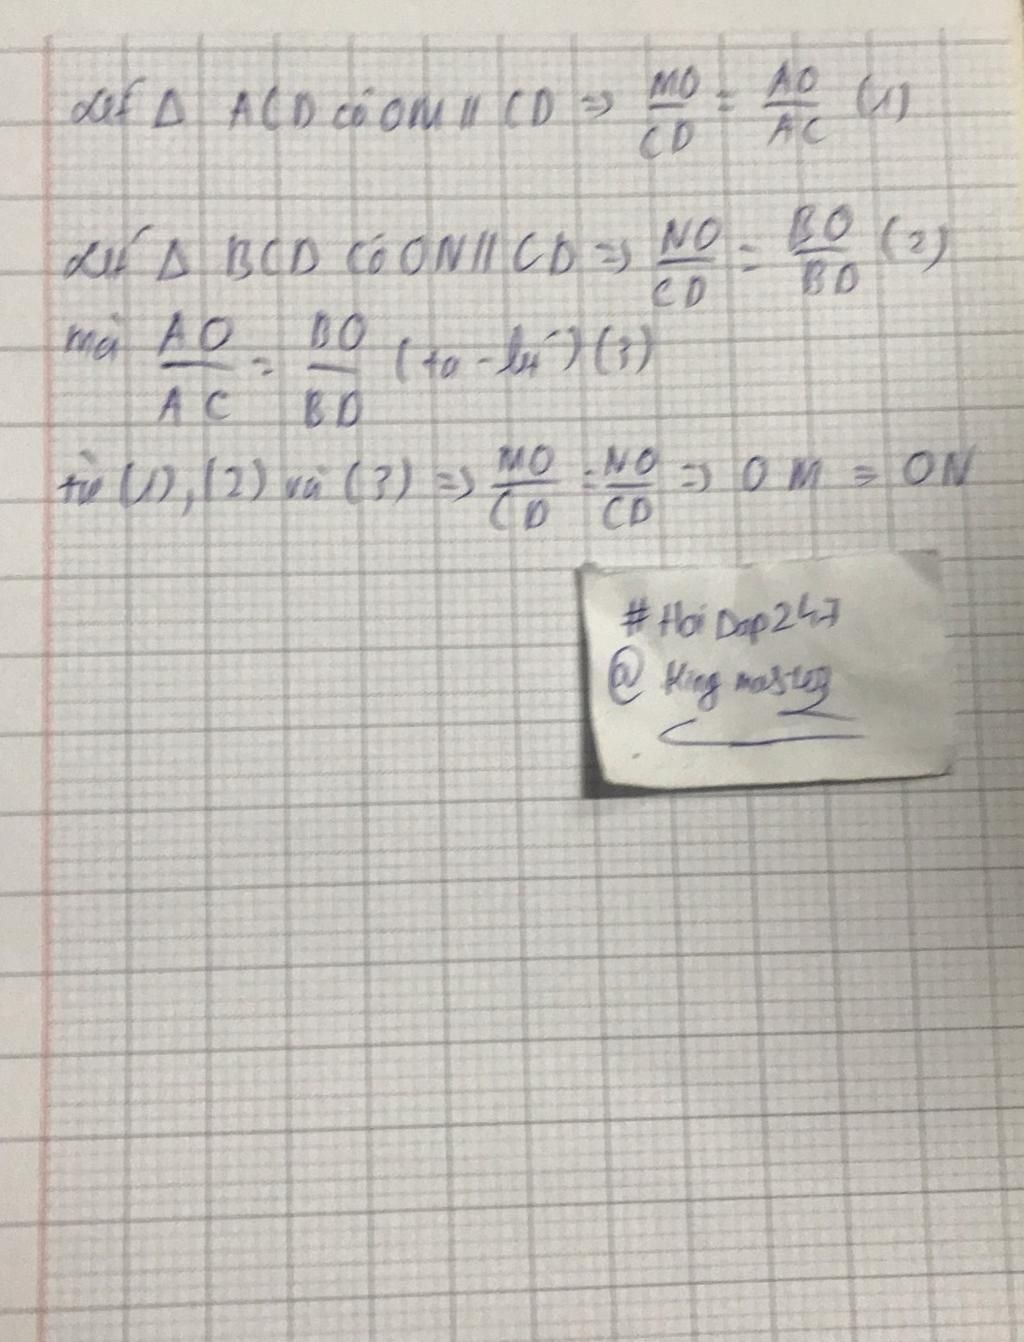 xét Δ ACD có OM // CD => MO/CD = AO/AC (1)
xét Δ BCD có ON // CD => NO/CD = BO/BD (2)
mà AO/AC = BO/BD (ta-lét) (3)
từ (1), (2) và (3) => MO/CD = NO/CD => OM = ON
#HoiDap247
@ King